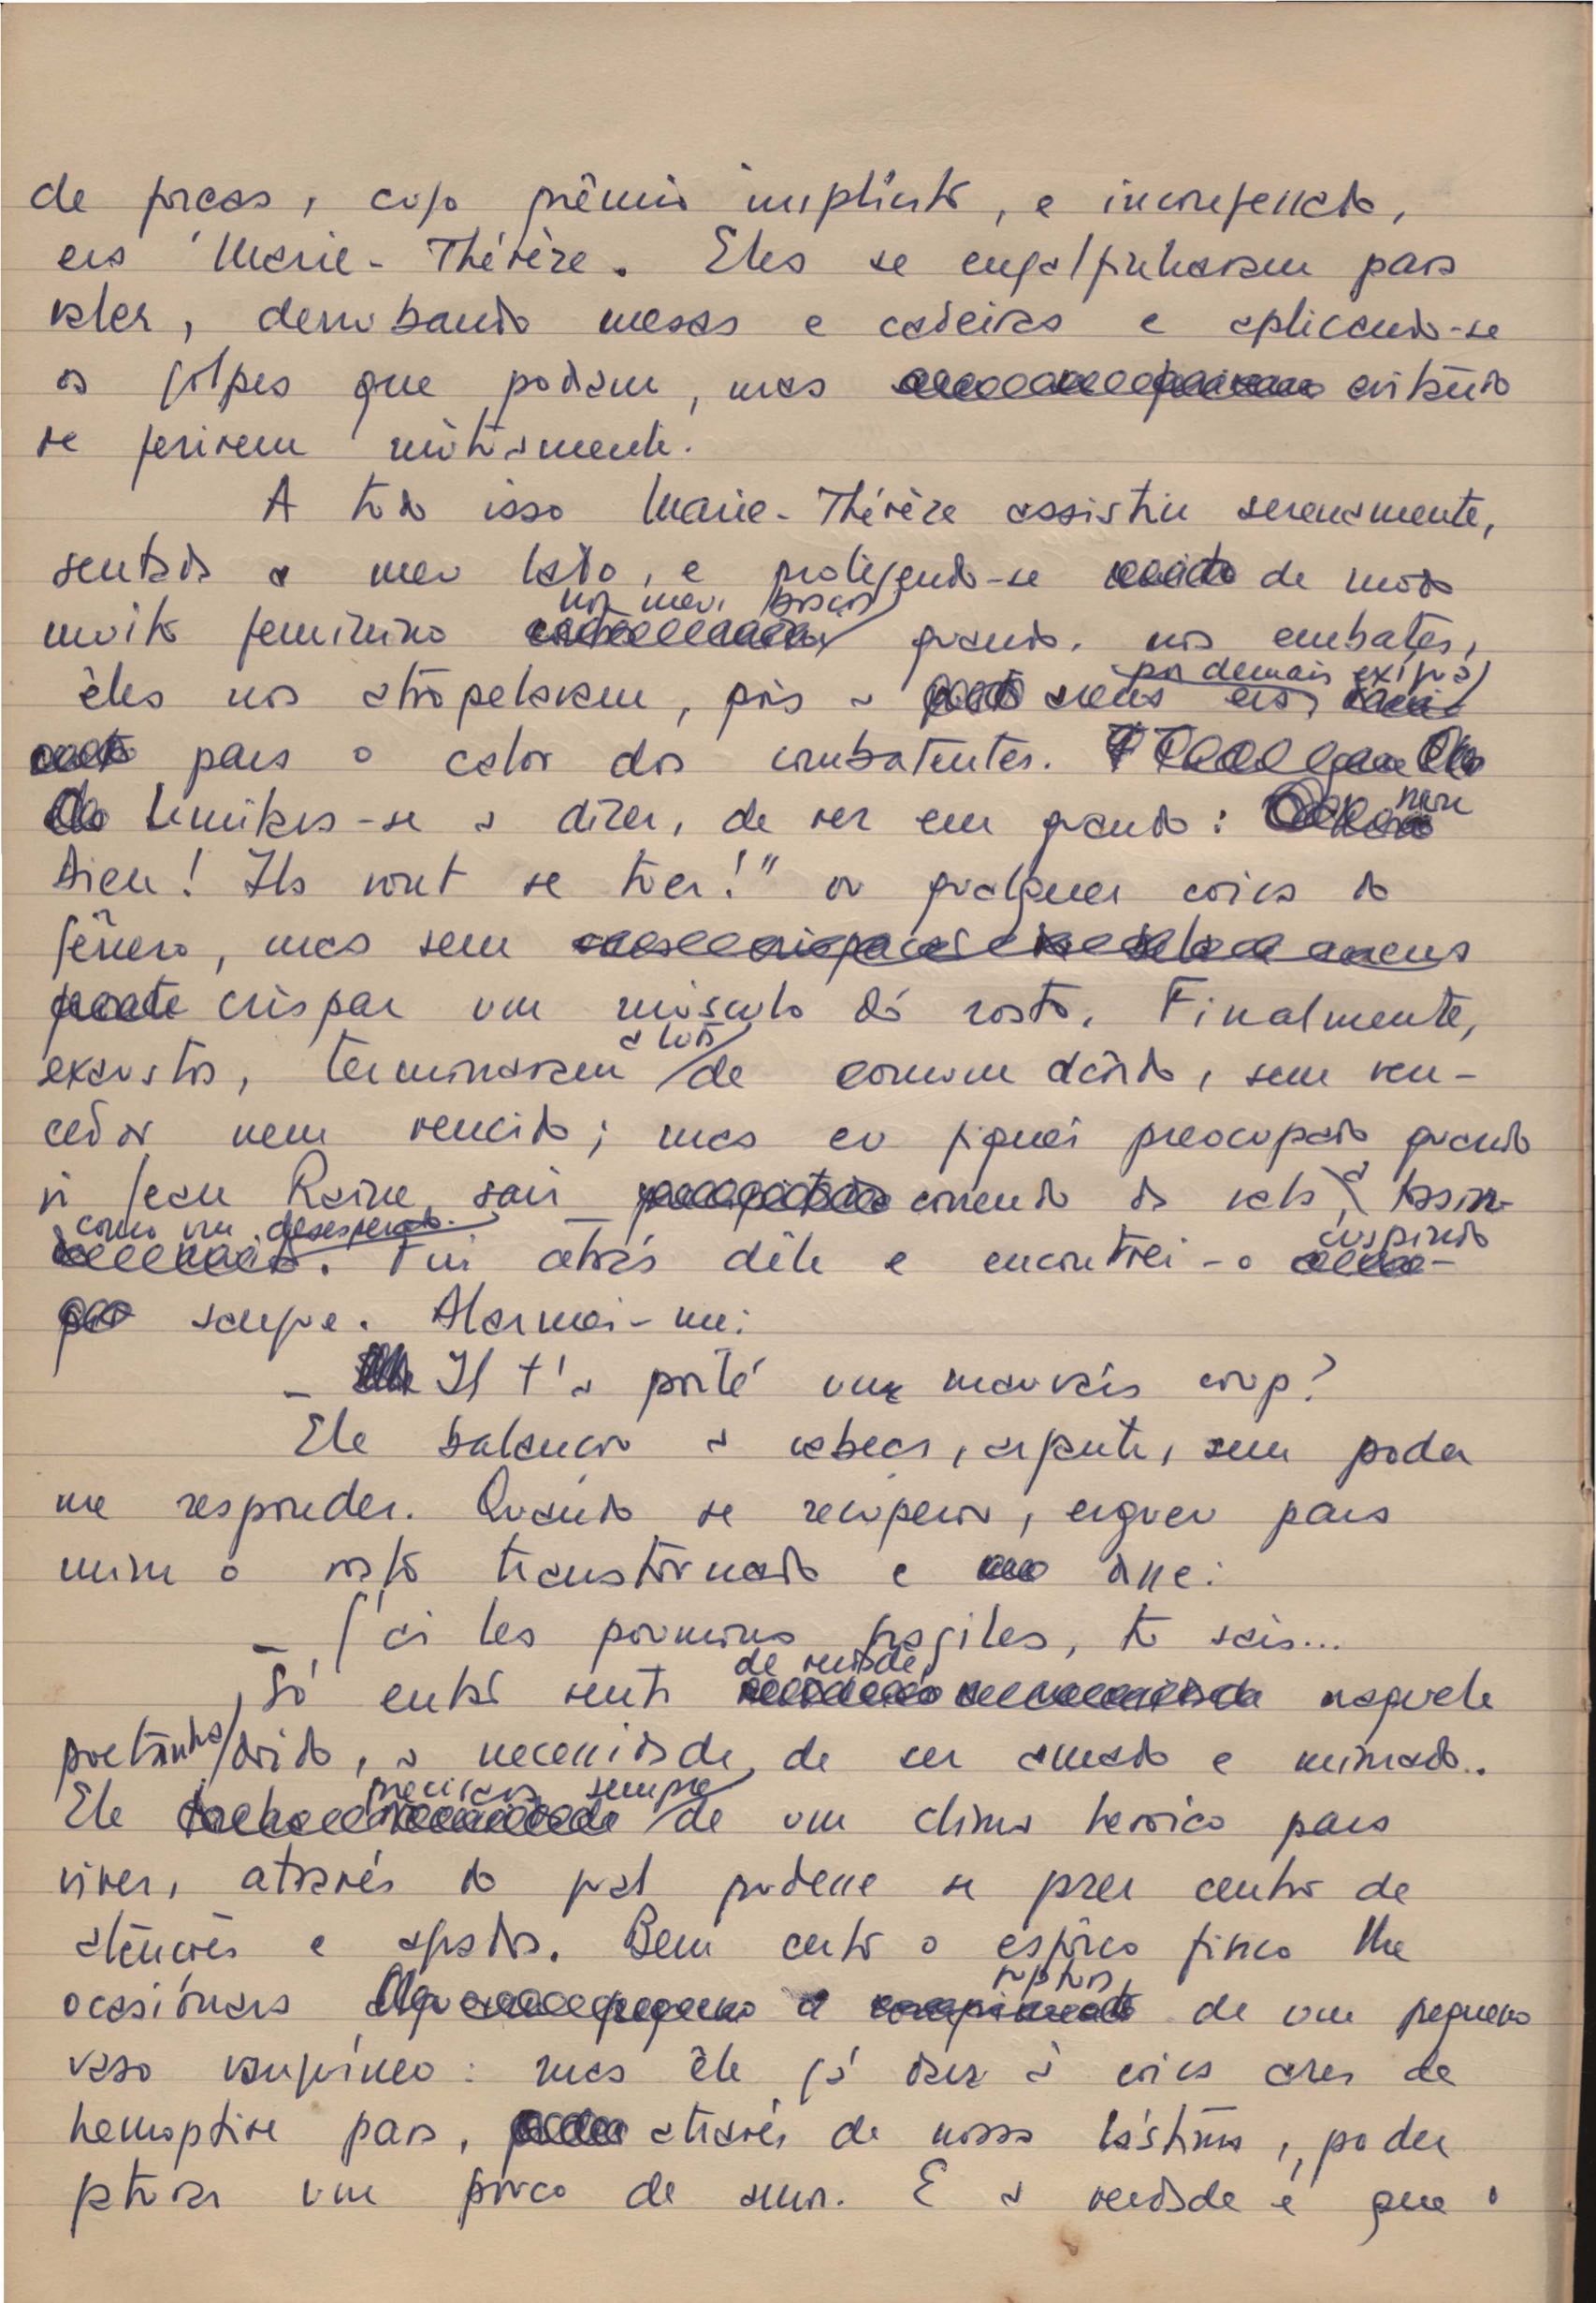 de forças, cujo prêmio implícito, e inconfessado,
era Marie-Thérèze. Eles se engalfinharam para
valer, derrubando mesas e cadeiras e aplicando-se
os golpes que podiam, mas evitando
se ferirem mùtuamente.
A tudo isso Marie-Thérèze assistiu serenamente,
sentada a meu lado, e protegendo-se de modo
muito feminino nos meus braços quando, nos embates,
êles nos atropelavam, pois a arena era por demais exígua
para o calor dos combatentes.
Limitava-se a dizer, de vez em quando: mon
Dieu! Ils vont se tuer!" ou qualquer coisa do
gênero, mas sem
crispar um músculo do rosto. Finalmente,
exaustos, terminaram a luta de comum acôrdo, sem ven-
cedor nem vencido; mas eu fiquei preocupado quando
vi Jean Raine sair correndo da sala, a tossir
como um desesperado. Fui atrás dêle e encontrei-o cuspindo
sangue. Alarmei-me:
- Il t'a porté un mauvais coup?
Ele balançou a cabeça, arfante, sem poder
me responder. Quando se recuperou, ergueu para
mim o rosto transtornado e disse:
- J'ai les poumons fragiles, tu sais...
Só então senti de verdade, naquele
poetinha árido, a necessidade de ser amado e mimado.
Ele precisava sempre de um clima heróico para
viver, através do qual pudesse se fazer centro de
atenções e agrados. Bem certo o esfôrço físico lhe
ocasionara a ruptura de um pequeno
vaso sanguíneo: mas êle já dava à coisa ares de
hemoptise para, através de nossa lástima, poder
faturar um pouco de amor. E a verdade é que o